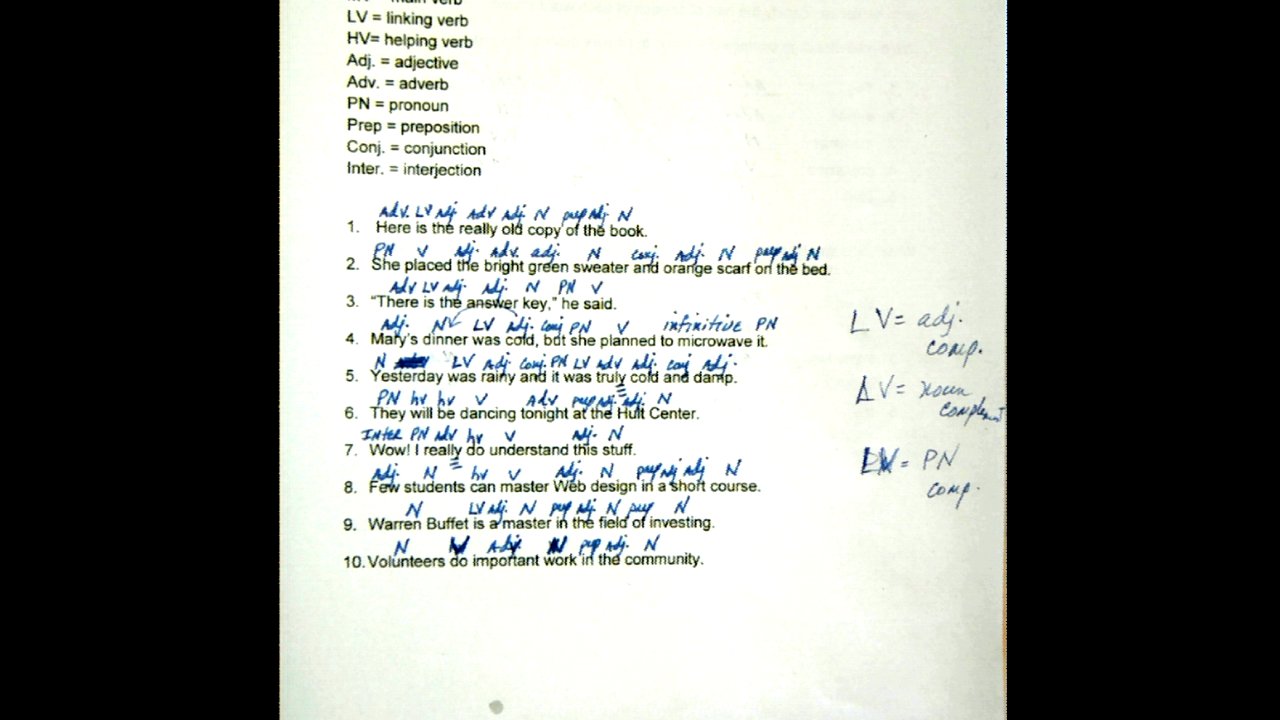 LV = linking verb
HV= helping verb
Adj. = adjective
Adv. = adverb
PN = pronoun
Prep = preposition
Conj. = conjunction
Inter. = interjection
Adv. LV Adj. Adv Adj. N prep Adj. N
1. Here is the really old copy of the book.
PN V Adj. Adv. adj. N conj. Adj. N prep adj N
2. She placed the bright green sweater and orange scarf on the bed.
Adv LV Adj. Adj. N PN V
3. “There is the answer key,” he said.
Adj. N LV Adj. conj PN V infinitive PN
4. Mary's dinner was cold, but she planned to microwave it.
N LV Adj. conj. PN LV Adv Adj. conj Adj.
5. Yesterday was rainy and it was truly cold and damp.
PN hv hv V Adv prep Adj. adj. N
6. They will be dancing tonight at the Hult Center.
Inter PN adv hv V Adj. N
7. Wow! I really do understand this stuff.
Adj. N hv V Adj. N prep adj adj N
8. Few students can master Web design in a short course.
N LV Adj. N prep adj. N prep N
9. Warren Buffet is a master in the field of investing.
N V Adj. N prep adj. N
10. Volunteers do important work in the community.
LV = adj.
comp.
LV = noun
complement
LV = PN
comp.